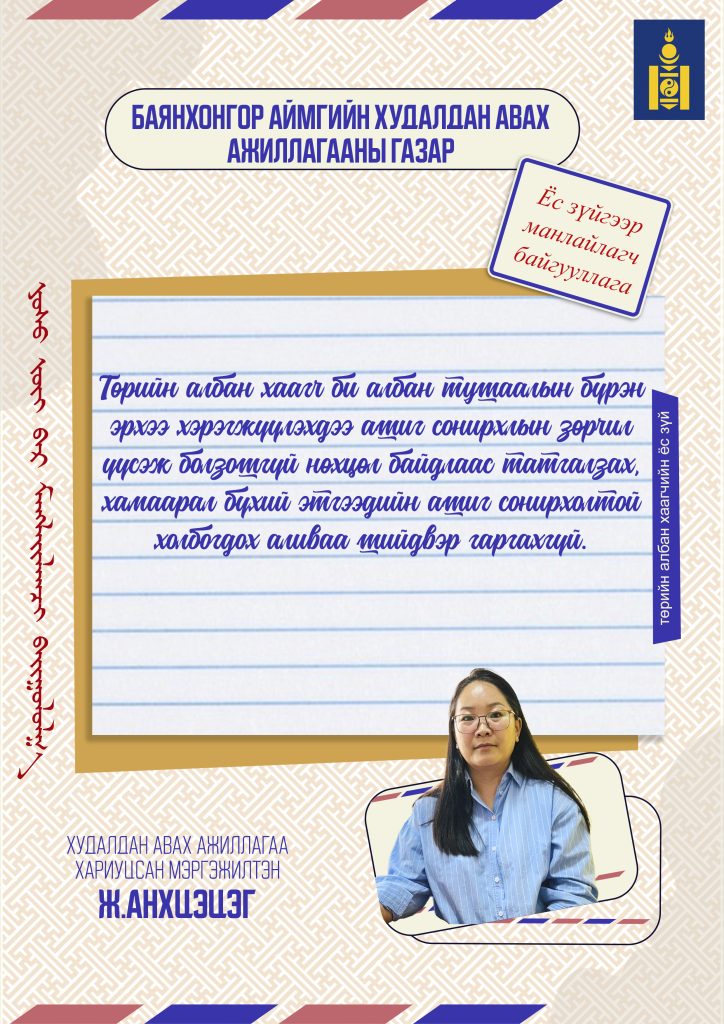 БАЯНХОНГОР АЙМГИЙН ХУДАЛДАН АВАХ
АЖИЛЛАГААНЫ ГАЗАР
Ёс зүйгээр
манлайлагч
байгууллага
Төрийн албан хаагч би албан тушаалын бүрэн
эрхээ хэрэгжүүлэхдээ ашиг сонирхлын зөрчил
үүсэж болзошгүй нөхцөл байдлаас татгалзах,
хамаарал бүхий этгээдийн ашиг сонирхолтой
холбогдох аливаа шийдвэр гаргахгүй.
төрийн албан хаагчийн ёс зүй
ХУДАЛДАН АВАХ АЖИЛЛАГАА
ХАРИУЦСАН МЭРГЭЖИЛТЭН
Ж.АНХЦЭЦЭГ